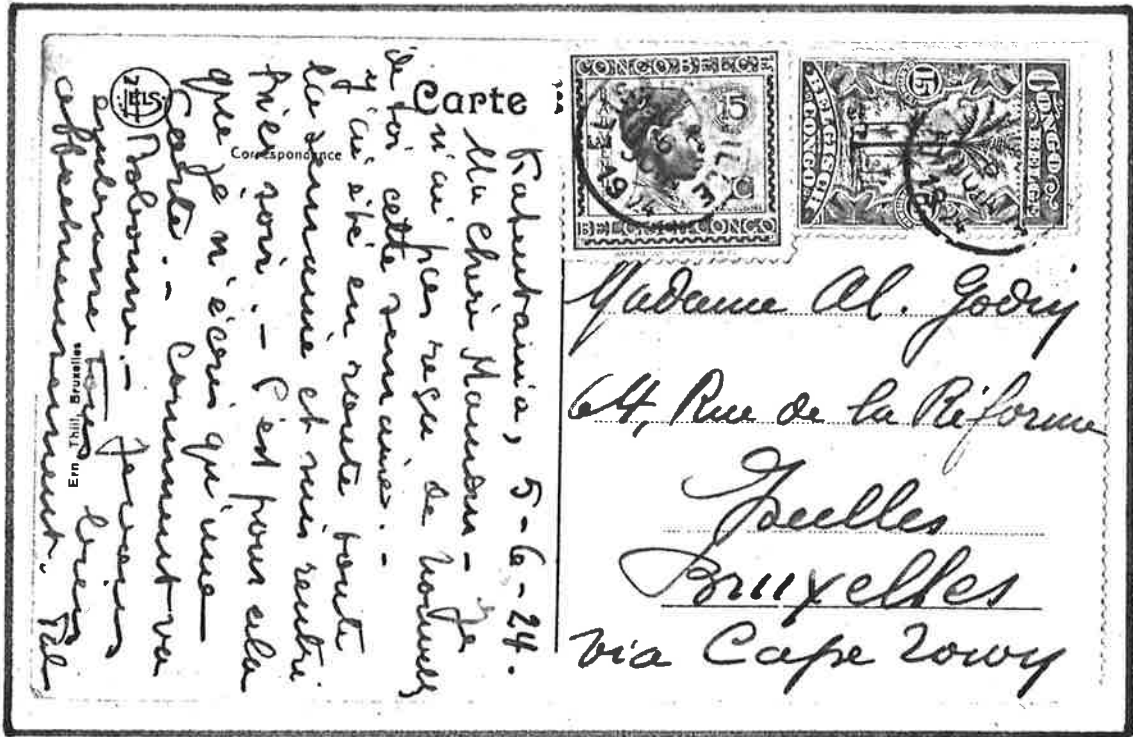 Carte
Correspondance
Katentania, 5-6-24.
Ma chère Maman – Je
n'ai pas reçu de nouvelles
de toi cette semaine. –
J'ai été en route toute
la semaine et suis rentré
hier soir. – C'est pour cela
que je n'écris qu'une
carte. – Comment va
Bobonne. – Je vous
embrasse tous bien
affectueusement.
NELS
Ern. Thill, Bruxelles
CONGO BELGE
15 C
BELGISCH CONGO
CONGO BELGE
15
BELGISCH CONGO
Madame Al. Godin
64, Rue de la Réforme
Ixelles
Bruxelles
via Cape Town